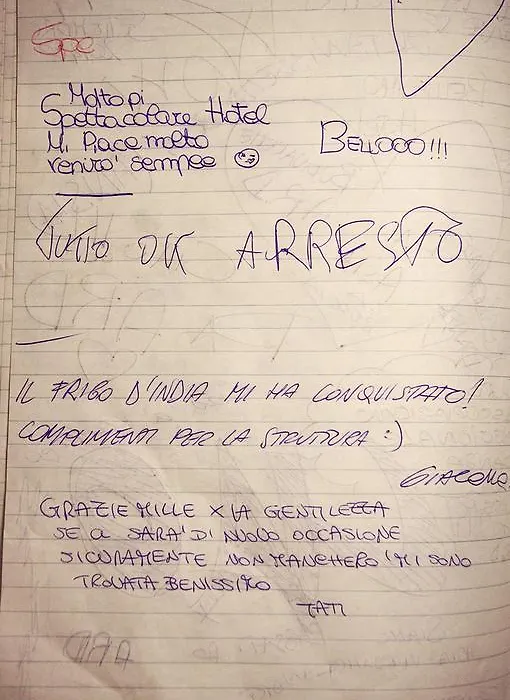 Spe
Molto pi
Spettacolare Hotel
Mi Piace molto
venirò sempre
BELLOOO!!!
TUTTO OK ARRESTO
IL FRIGO D'INDIA MI HA CONQUISTATO!
COMPLIMENTI PER LA STRUTTURA :)
GIACOMO
GRAZIE MILLE X LA GENTILEZZA
SE CI SARA' DI NUOVO OCCASIONE
SICURAMENTE NON MANCHERO' MI SONO
TROVATA BENISSIMO
TATI